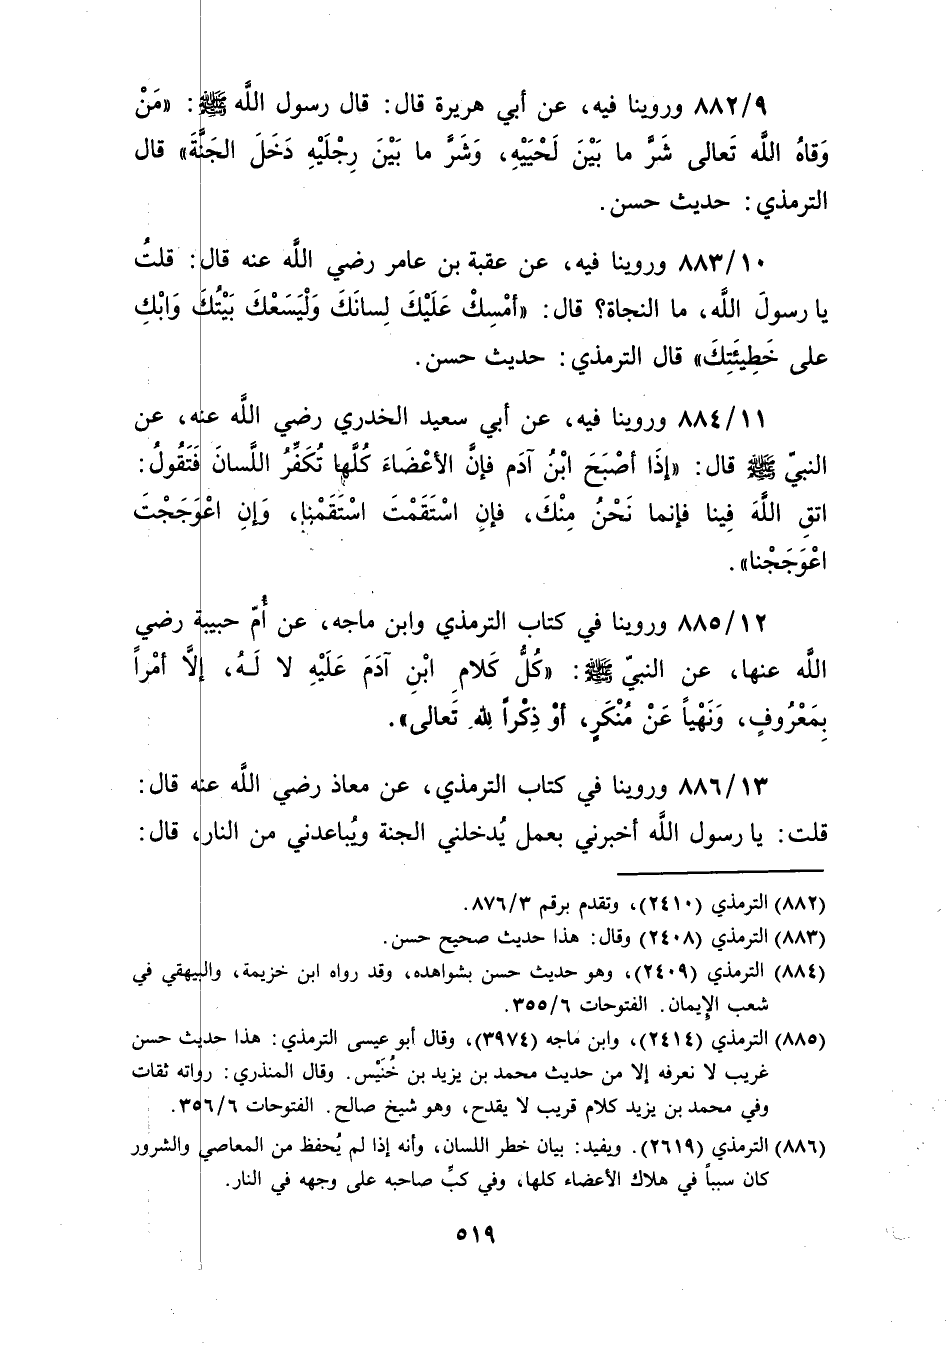 ٨٨٢/٩ وروينا فيه، عن أبي هريرة قال: قال رسول اللَّه ﷺ: «مَنْ
وَقاهُ اللَّه تَعالى شَرَّ ما بَيْنَ لَحْيَيْهِ، وَشَرَّ ما بَيْنَ رِجْلَيْهِ دَخَلَ الجَنَّةَ» قال
الترمذي: حديث حسن.
٨٨٣/١٠ وروينا فيه، عن عقبة بن عامر رضي اللَّه عنه قال: قلتُ
يا رسولَ اللَّه، ما النجاة؟ قال: «أمْسِكْ عَلَيْكَ لِسانَكَ وَلْيَسَعْكَ بَيْتُكَ وَابْكِ
على خَطِيئَتِكَ» قال الترمذي: حديث حسن.
٨٨٤/١١ وروينا فيه، عن أبي سعيد الخدري رضي اللَّه عنه، عن
النبيّ ﷺ قال: «إذَا أصْبَحَ ابْنُ آدَم فإنَّ الأعْضَاءَ كُلَّها تُكَفِّرُ اللَّسانَ فَتَقُولُ:
اتقِ اللَّهَ فِينا فإنما نَحْنُ مِنْكَ، فإنِ اسْتَقَمْتَ اسْتَقَمْنا، وَإنِ اعْوَجَجْتَ
اعْوَجَجْنا».
٨٨٥/١٢ وروينا في كتاب الترمذي وابن ماجه، عن أُمّ حبيبة رضي
اللَّه عنها، عن النبيّ ﷺ: «كُلُّ كَلامِ ابْنِ آدَمَ عَلَيْهِ لا لَهُ، إلَّا أمْراً
بِمَعْرُوفٍ، وَنَهْياً عَنْ مُنْكَرٍ، أوْ ذِكْراً لِلَّهِ تَعالى».
٨٨٦/١٣ وروينا في كتاب الترمذي، عن معاذ رضي اللَّه عنه قال:
قلت: يا رسول اللَّه أخبرني بعمل يُدخلني الجنة ويُباعدني من النار، قال:
(٨٨٢) الترمذي (٢٤١٠)، وتقدم برقم ٨٧٦/٣.
(٨٨٣) الترمذي (٢٤٠٨) وقال: هذا حديث صحيح حسن.
(٨٨٤) الترمذي (٢٤٠٩)، وهو حديث حسن بشواهده، وقد رواه ابن خزيمة، والبيهقي في
شعب الإيمان. الفتوحات ٣٥٥/٦.
(٨٨٥) الترمذي (٢٤١٤)، وابن ماجه (٣٩٧٤)، وقال أبو عيسى الترمذي: هذا حديث حسن
غريب لا نعرفه إلا من حديث محمد بن يزيد بن خُنَيْس. وقال المنذري: رواته ثقات
وفي محمد بن يزيد كلام قريب لا يقدح، وهو شيخ صالح. الفتوحات ٣٥٦/٦.
(٨٨٦) الترمذي (٢٦١٩). ويفيد: بيان خطر اللسان، وأنه إذا لم يُحفظ من المعاصي والشرور
كان سبباً في هلاك الأعضاء كلها، وفي كبِّ صاحبه على وجهه في النار.
٥١٩